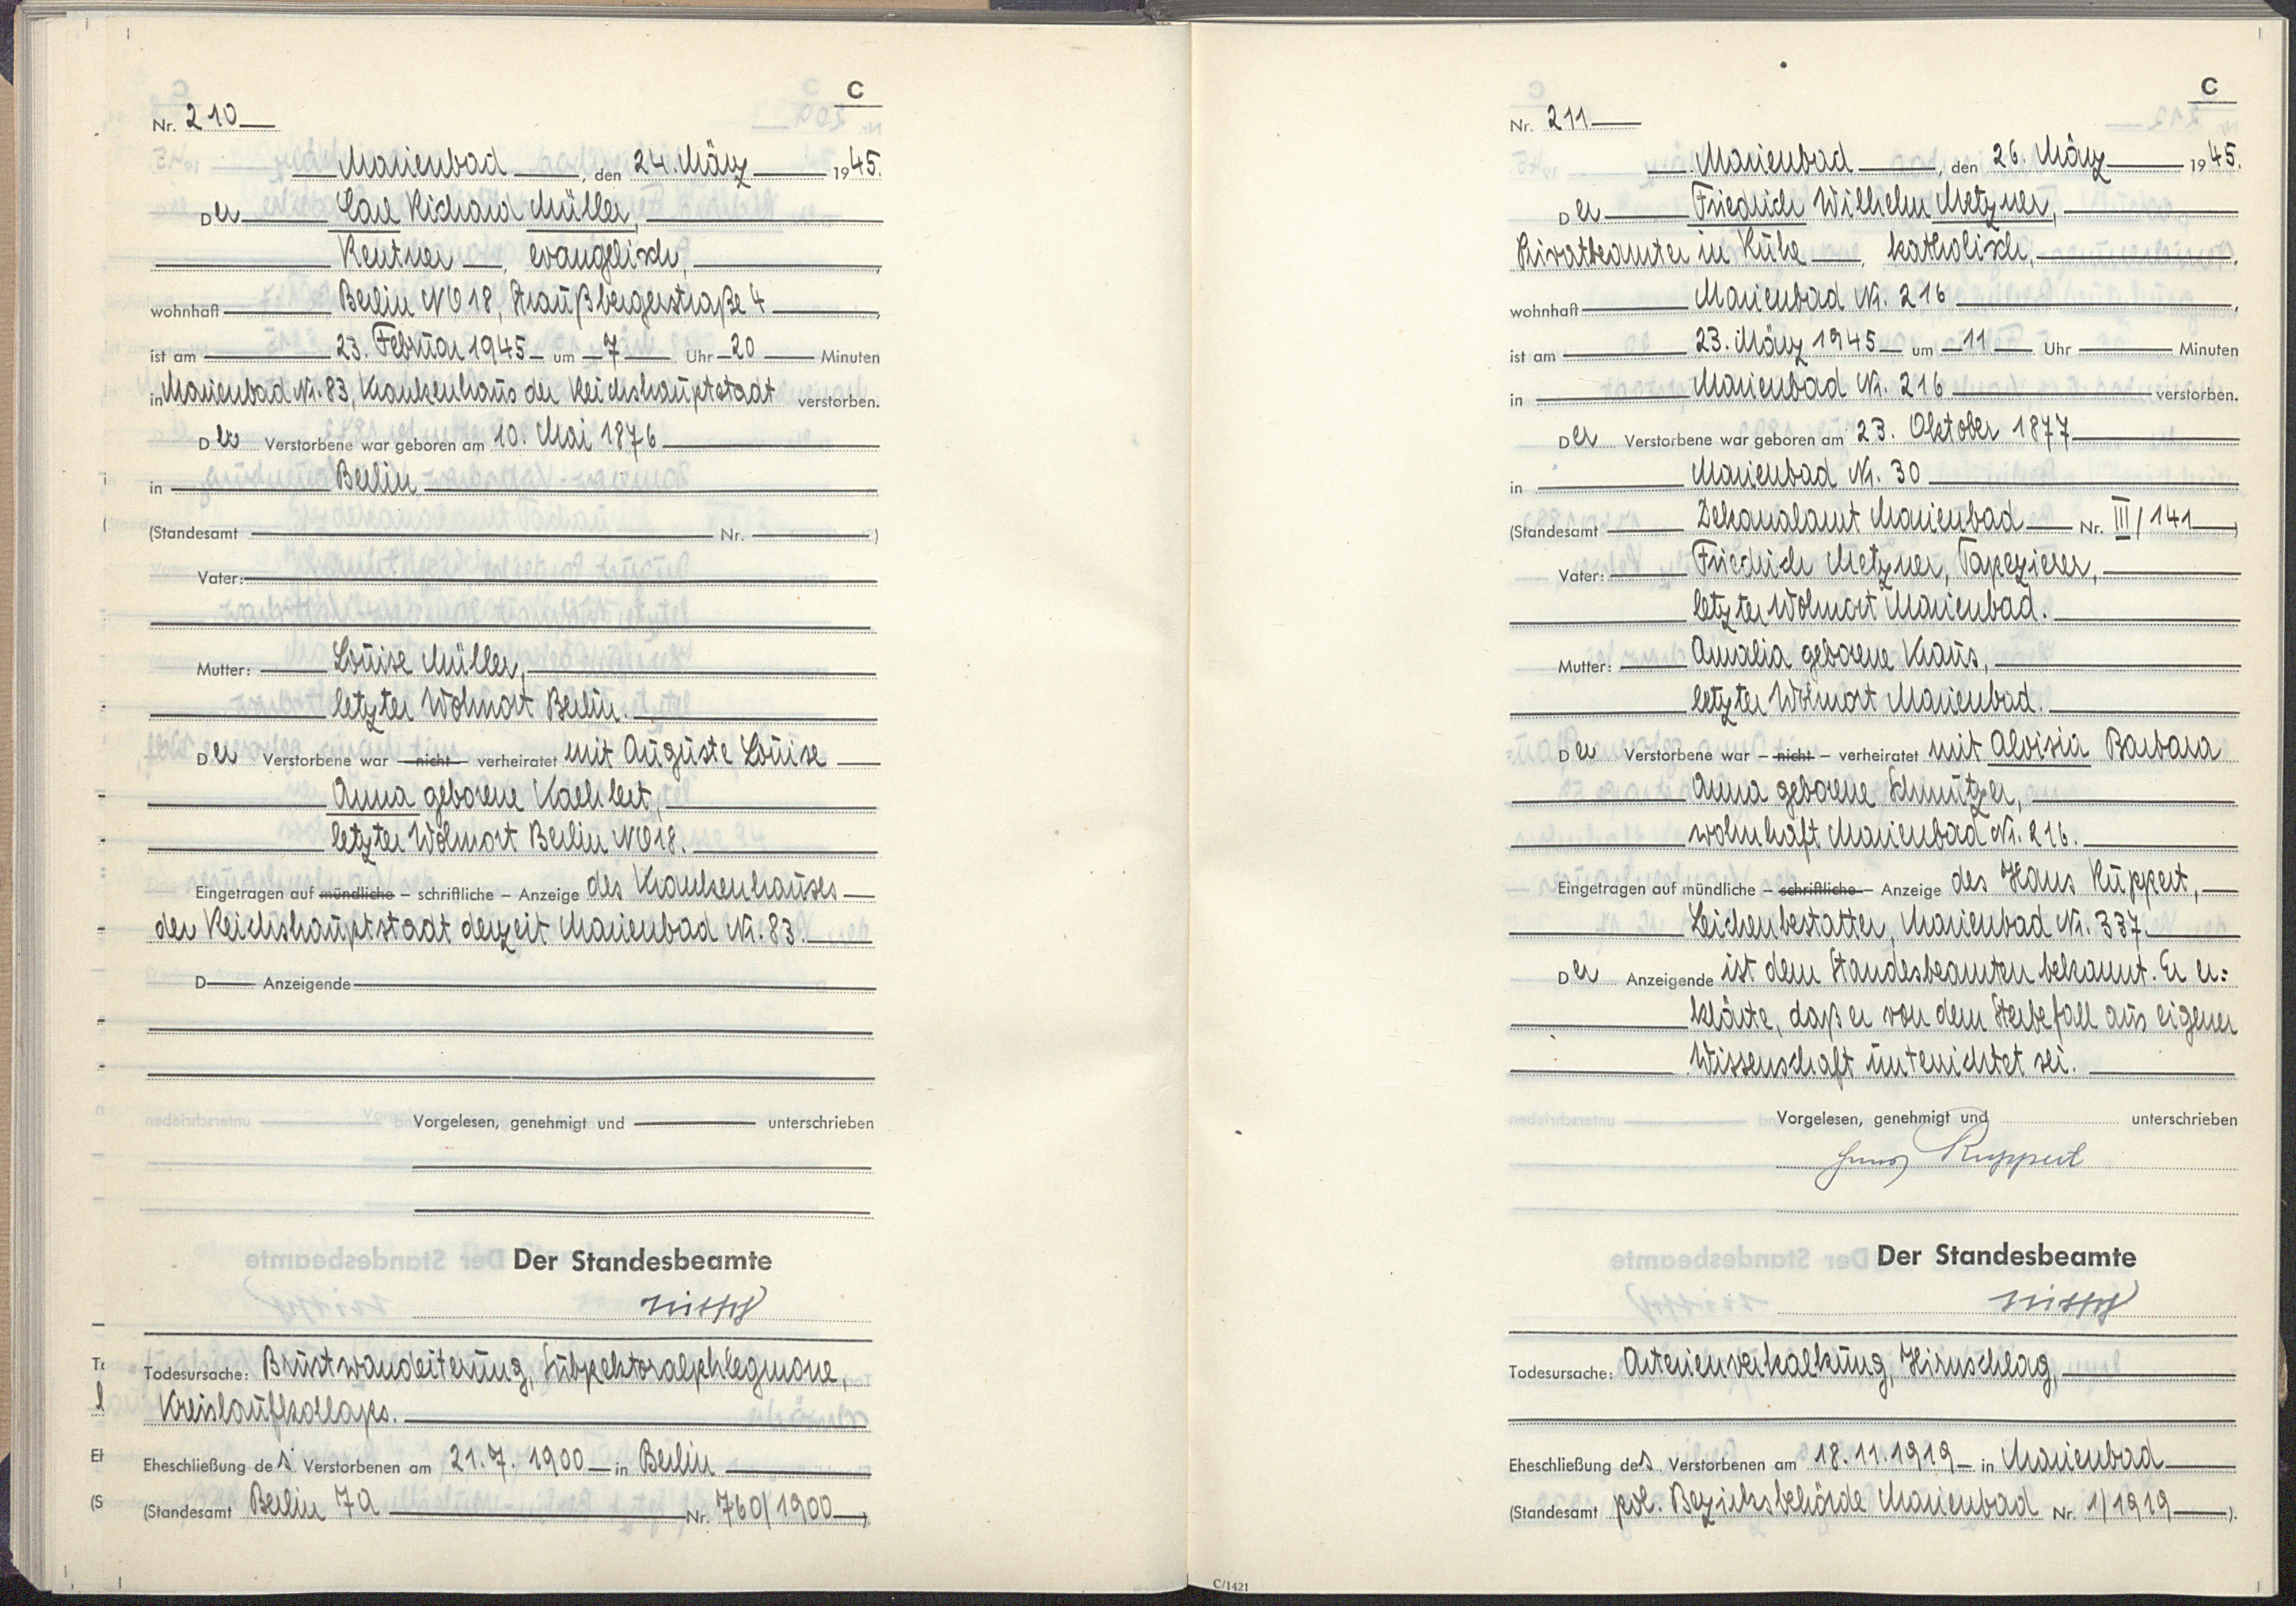 C
Nr. 210
Marienbad, den 24. März 1945.
Der Carl Richard Müller,
Rentner, evangelisch,
wohnhaft Berlin NO 18, Straußbergerstraße 4,
ist am 23. Februar 1945 um 7 Uhr 20 Minuten
in Marienbad Nr. 83, Krankenhaus der Reichshauptstadt verstorben.
Der Verstorbene war geboren am 10. Mai 1876
in Berlin
(Standesamt Nr. )
Vater:
Mutter: Louise Müller,
letzter Wohnort Berlin.
Der Verstorbene war – nicht – verheiratet mit Auguste Louise
Anna geborene Kaehlert,
letzter Wohnort Berlin NO 18.
Eingetragen auf mündliche – schriftliche – Anzeige des Krankenhauses
der Reichshauptstadt derzeit Marienbad Nr. 83.
D Anzeigende
Vorgelesen, genehmigt und unterschrieben
Der Standesbeamte
Todesursache: Brustwandeiterung, Subpektoralphlegmone,
Kreislaufkollaps.
Eheschließung des Verstorbenen am 21. 7. 1900 in Berlin
(Standesamt Berlin 7a Nr. 760/1900)
C
Nr. 211
Marienbad, den 26. März 1945.
Der Friedrich Wilhelm Metzner,
Privatbeamter in Ruhe, katholisch,
wohnhaft Marienbad Nr. 216,
ist am 23. März 1945 um 11 Uhr Minuten
in Marienbad Nr. 216 verstorben.
Der Verstorbene war geboren am 23. Oktober 1877
in Marienbad Nr. 30
(Standesamt Dekanalamt Marienbad Nr. III/141)
Vater: Friedrich Metzner, Tapezierer,
letzter Wohnort Marienbad.
Mutter: Amalia geborene Kraus,
letzter Wohnort Marienbad.
Der Verstorbene war – nicht – verheiratet mit Aloisia Barbara
Anna geborene Schmutzer,
wohnhaft Marienbad Nr. 216.
Eingetragen auf mündliche – schriftliche – Anzeige des Hans Ruppert,
Leichenbestatter, Marienbad Nr. 337.
Der Anzeigende ist dem Standesbeamten bekannt. Er er:
klärte, daß er von dem Sterbefall aus eigener
Wissenschaft unterrichtet sei.
Vorgelesen, genehmigt und unterschrieben
Hans Ruppert
Der Standesbeamte
Todesursache: Arterienverkalkung, Hirnschlag,
Eheschließung des Verstorbenen am 18. 11. 1919 in Marienbad
(Standesamt pol. Bezirksbehörde Marienbad Nr. 1/1919).
C/1421